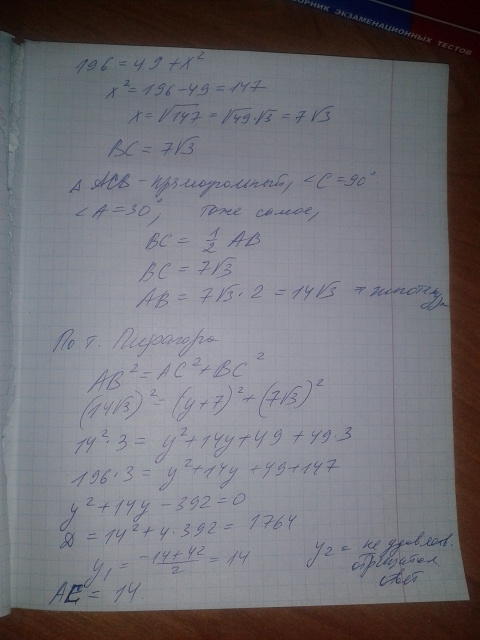 СБОРНИК ЭКЗАМЕНАЦИОННЫХ ТЕСТОВ
196 = 49 + x²
x² = 196 - 49 = 147
x = √147 = √49·√3 = 7√3
BC = 7√3
Δ ACB - прямоугольный, ∠C = 90°
∠A = 30°, тоже самое,
BC = 1/2 AB
BC = 7√3
AB = 7√3 · 2 = 14√3 → гипотенуза
По т. Пифагора
AB² = AC² + BC²
(14√3)² = (y+7)² + (7√3)²
14²·3 = y² + 14y + 49 + 49·3
196·3 = y² + 14y + 49 + 147
y² + 14y - 392 = 0
D = 14² + 4·392 = 1764
y₁ = (-14+42)/2 = 14 y₂ = не удовлетв.
ответ
AE = 14.